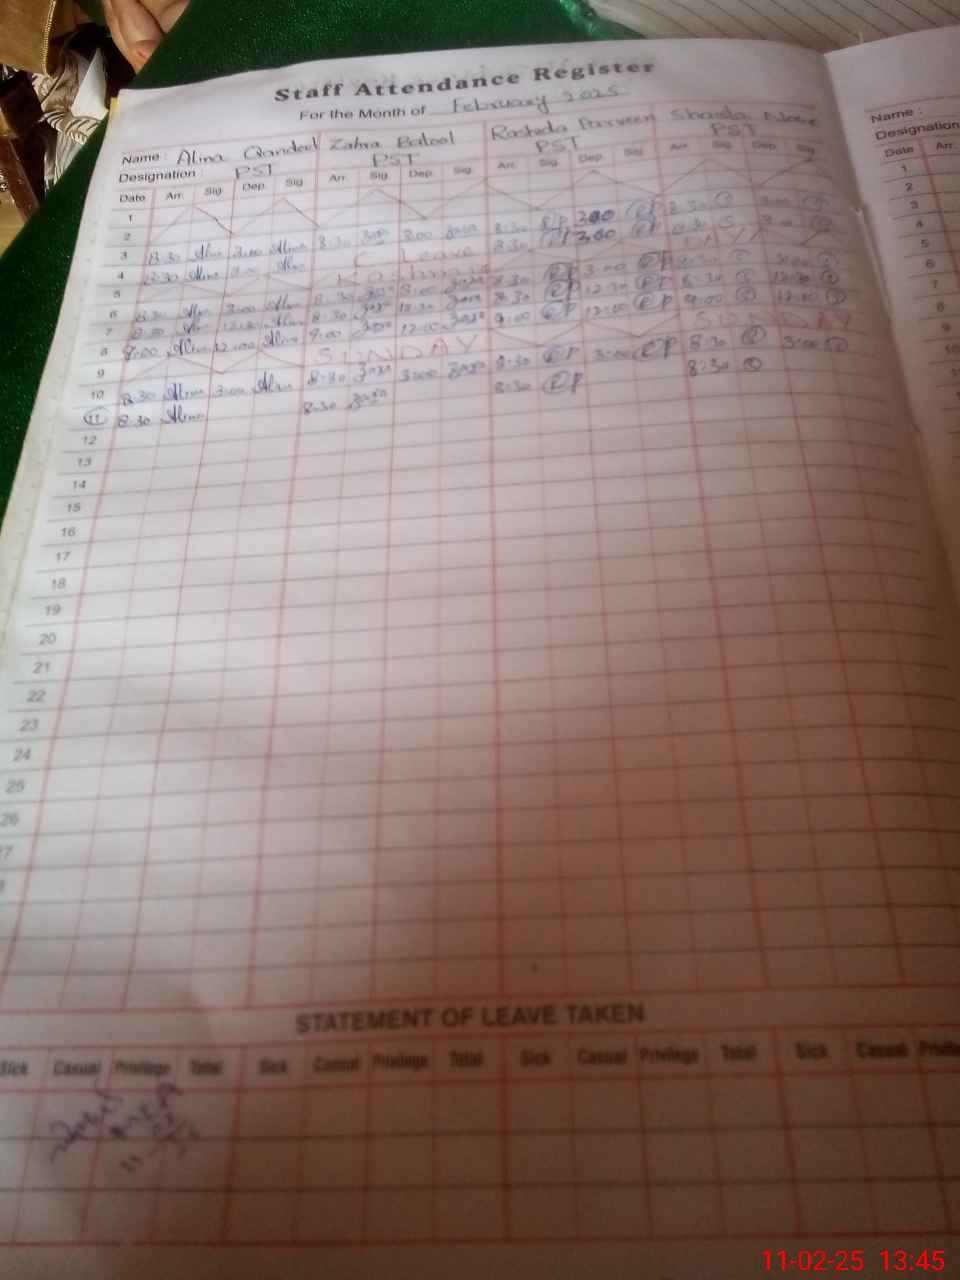 Staff Attendance Register
For the Month of February 2025
Name : Alina Qandeel Zahra Batool Rashida Parveen Shanila Noor Name :
Designation : PST PST PST PST Designation
Date Arr. Sig. Dep. Sig. Arr. Sig. Dep. Sig. Arr. Sig. Dep. Sig. Arr. Sig. Dep. Sig. Date Arr.
1
2
3 8:30 Alina 3:00 Alina 8:30 3:00 8:30 RP 3:00 RP 8:30 3:00
4 8:30 Alina 3:00 Alina C Leave 8:30 RP 3:00 RP 8:30 3:00
5 Kashmir DAY
6 8:30 Alina 3:00 Alina 8:30 3:00 8:30 RP 3:00 RP 8:30 3:00
7 8:30 Alina 12:30 Alina 8:30 12:30 8:30 RP 12:30 RP 8:30 12:30
8 9:00 Alina 12:00 Alina 9:00 12:00 9:00 RP 12:00 RP 9:00 12:00
9 SUNDAY SUNDAY
10 8:30 Alina 3:00 Alina 8:30 3:00 8:30 RP 3:00 RP 8:30 3:00
11 8:30 Alina 8:30 8:30 RP 8:30
12
13
14
15
16
17
18
19
20
21
22
23
24
25
26
STATEMENT OF LEAVE TAKEN
Sick Casual Privilege Total Sick Casual Privilege Total Sick Casual Privilege Total Sick Casual
MEA
11-02-25 13:45